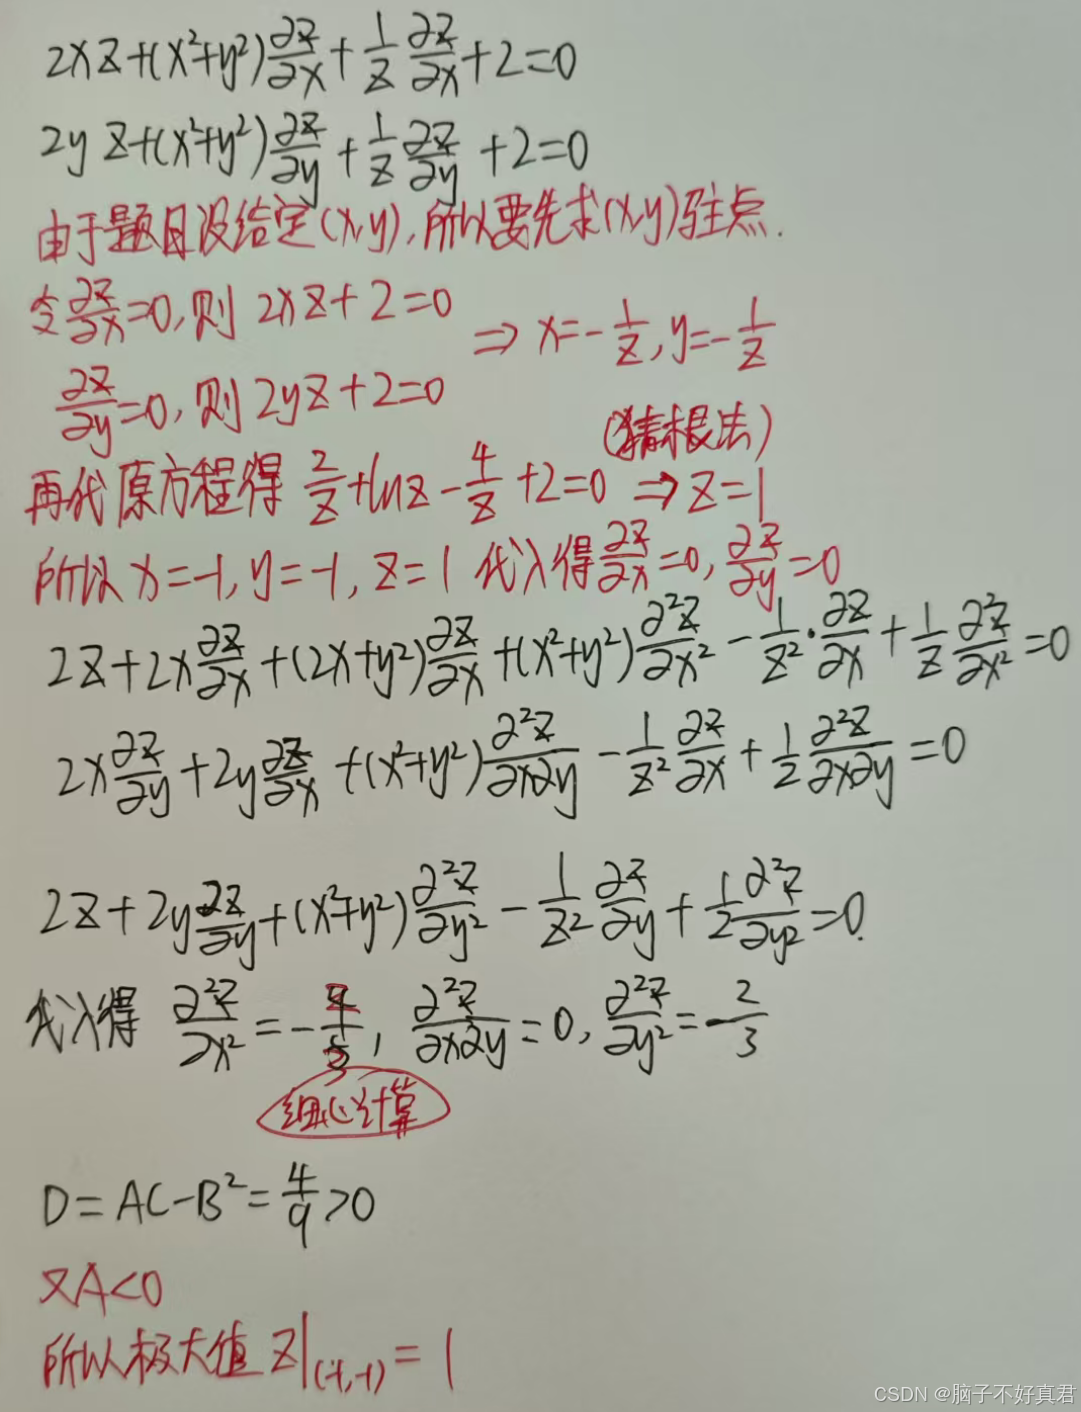 2xz+(x²+y²)∂z/∂x+1/z ∂z/∂x+2=0
2yz+(x²+y²)∂z/∂y+1/z ∂z/∂y+2=0
由于题目没给定(x,y),所以要先求(x,y)驻点.
令∂z/∂x=0,则 2xz+2=0
⇒ x=-1/z, y=-1/z
∂z/∂y=0,则 2yz+2=0
(猜根法)
再代原方程得 2/z+lnz-4/z+2=0 ⇒ z=1
所以 x=-1, y=-1, z=1 代入得 ∂z/∂x=0, ∂z/∂y=0
2z+2x∂z/∂x+(2x+y²)∂z/∂x+(x²+y²)∂²z/∂x²-1/z²·∂z/∂x+1/z ∂²z/∂x²=0
2x∂z/∂y+2y∂z/∂x+(x²+y²)∂²z/∂x∂y-1/z² ∂z/∂x+1/2 ∂²z/∂x∂y=0
2z+2y∂z/∂y+(x²+y²)∂²z/∂y²-1/z² ∂z/∂y+1/2 ∂²z/∂y²=0.
代入得 ∂²z/∂x²=-2/3, ∂²z/∂x∂y=0, ∂²z/∂y²=-2/3
细心计算
D=AC-B²=4/9>0
又A<0
所以极大值 z|(-1,-1)=1
CSDN @脑子不好真君